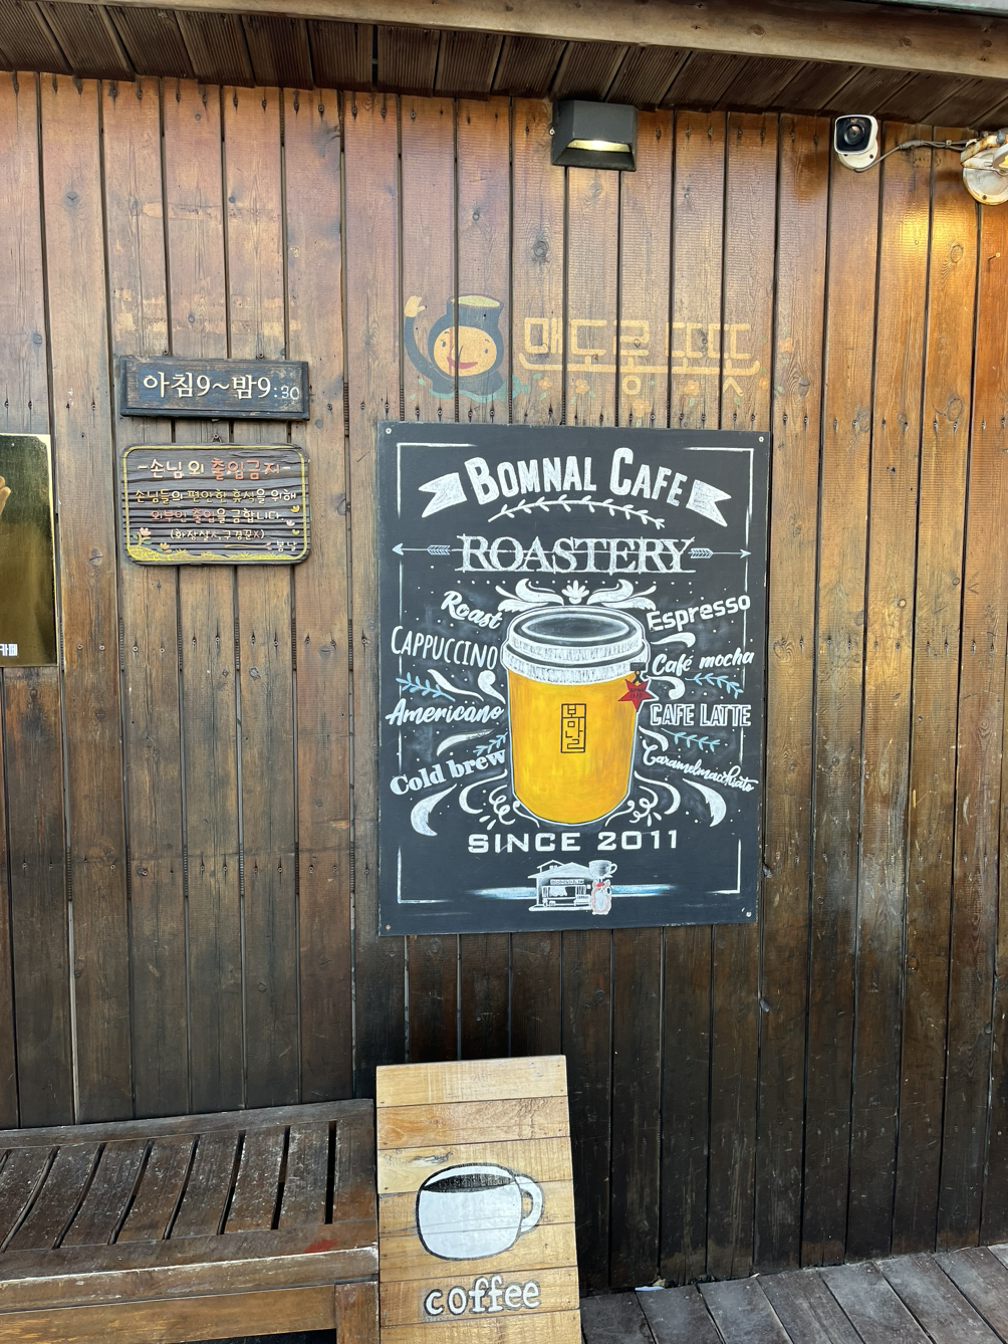 맨도롱 또똣
아침9~밤9:30
-손님 외 출입금지-
손님들의 편안한 휴식을 위해
외부인 출입을 금합니다.
(화장실, 구경꾼X)
봄날
카페
BOMNAL CAFE
ROASTERY
Roast
Espresso
CAPPUCCINO
Café mocha
Americano
CAFE LATTE
Cold brew
Caramelmacchiato
봄날
SINCE 2011
coffee